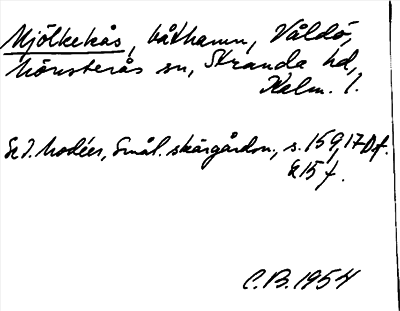 Mjölkekås, båthamn, Våldö,
Mönsterås sn, Stranda hd,
Kalm. l.
Se I. Modéer, Smål. skärgårdsn., s. 159, 170 f.
215 f.
C.B. 1954